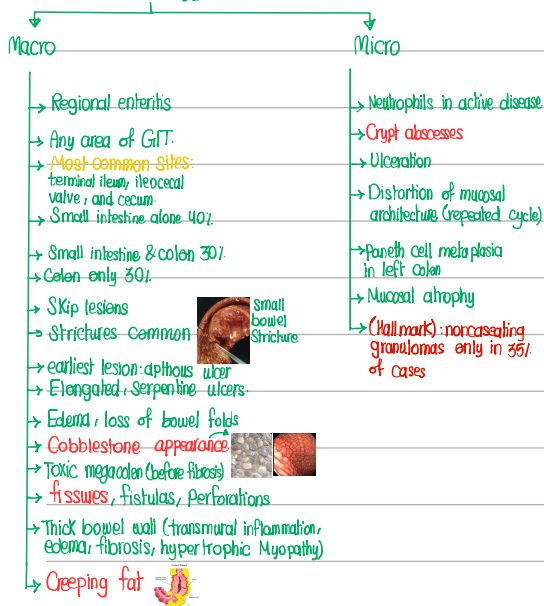 Macro
Regional enteritis
Any area of GIT.
Most common Sites:
terminal ileum, ileocecal
valve, and cecum.
Small intestine alone 40%
Small intestine & colon 30%.
Colon only 30%
Skip lesions
Strictures common
Small
bowel
Stricture
earliest lesion: apthous ulcer
Elongated, Serpentine ulcers.
Edema, loss of bowel folds
Cobblestone appearance
Toxic megacolon (before fibrosis)
fissures, fistulas, perforations
Thick bowel wall (transmural inflammation,
edema, fibrosis, hypertrophic Myopathy)
Creeping fat
Micro
Neutrophils in active disease.
Crypt abscesses
Ulceration
Distortion of mucosal
architecture (repeated cycle)
Paneth cell metaplasia
in left colon
Mucosal atrophy
(Hallmark): noncaseating
granulomas only in 35%
of cases